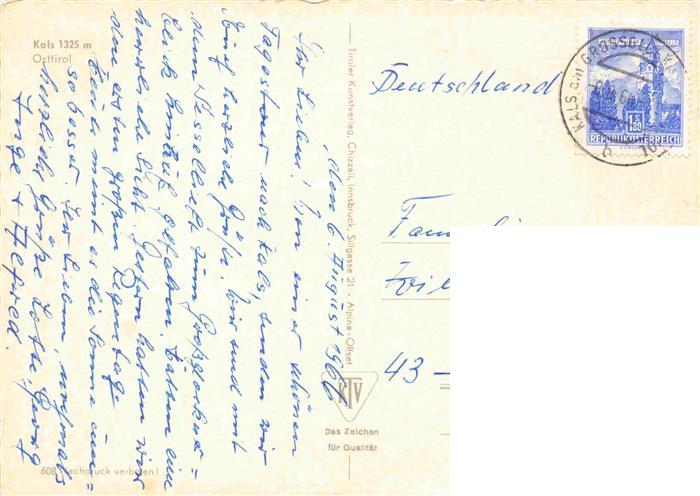 Kals 1325 m
Osttirol
den 6. August 1966
Ihr Lieben! Von einer schönen
Tagestour nach Kals, senden wir
Euch herzliche Grüße. Wir sind mit
dem Sessellift zum Großglockner=
blick hinauf gefahren. Hatten eine
herrliche Sicht. Gestern hatten wir
den ersten großen Regentag.
Heute meint es die Sonne um=
so besser. Ihr Lieben, nochmals
herzliche Grüße Lothe, Georg
Inge +
608 Nachdruck verboten!
Tiroler Kunstverlag, Chizzali, Innsbruck, Sillgasse 21 - Alpina-Offset
KTV
Das Zeichen
für Qualität
Deutschland
KALS a.m GROSSGLOCKNER
b
1.80
REPUBLIK ÖSTERREICH
Fam
43 -